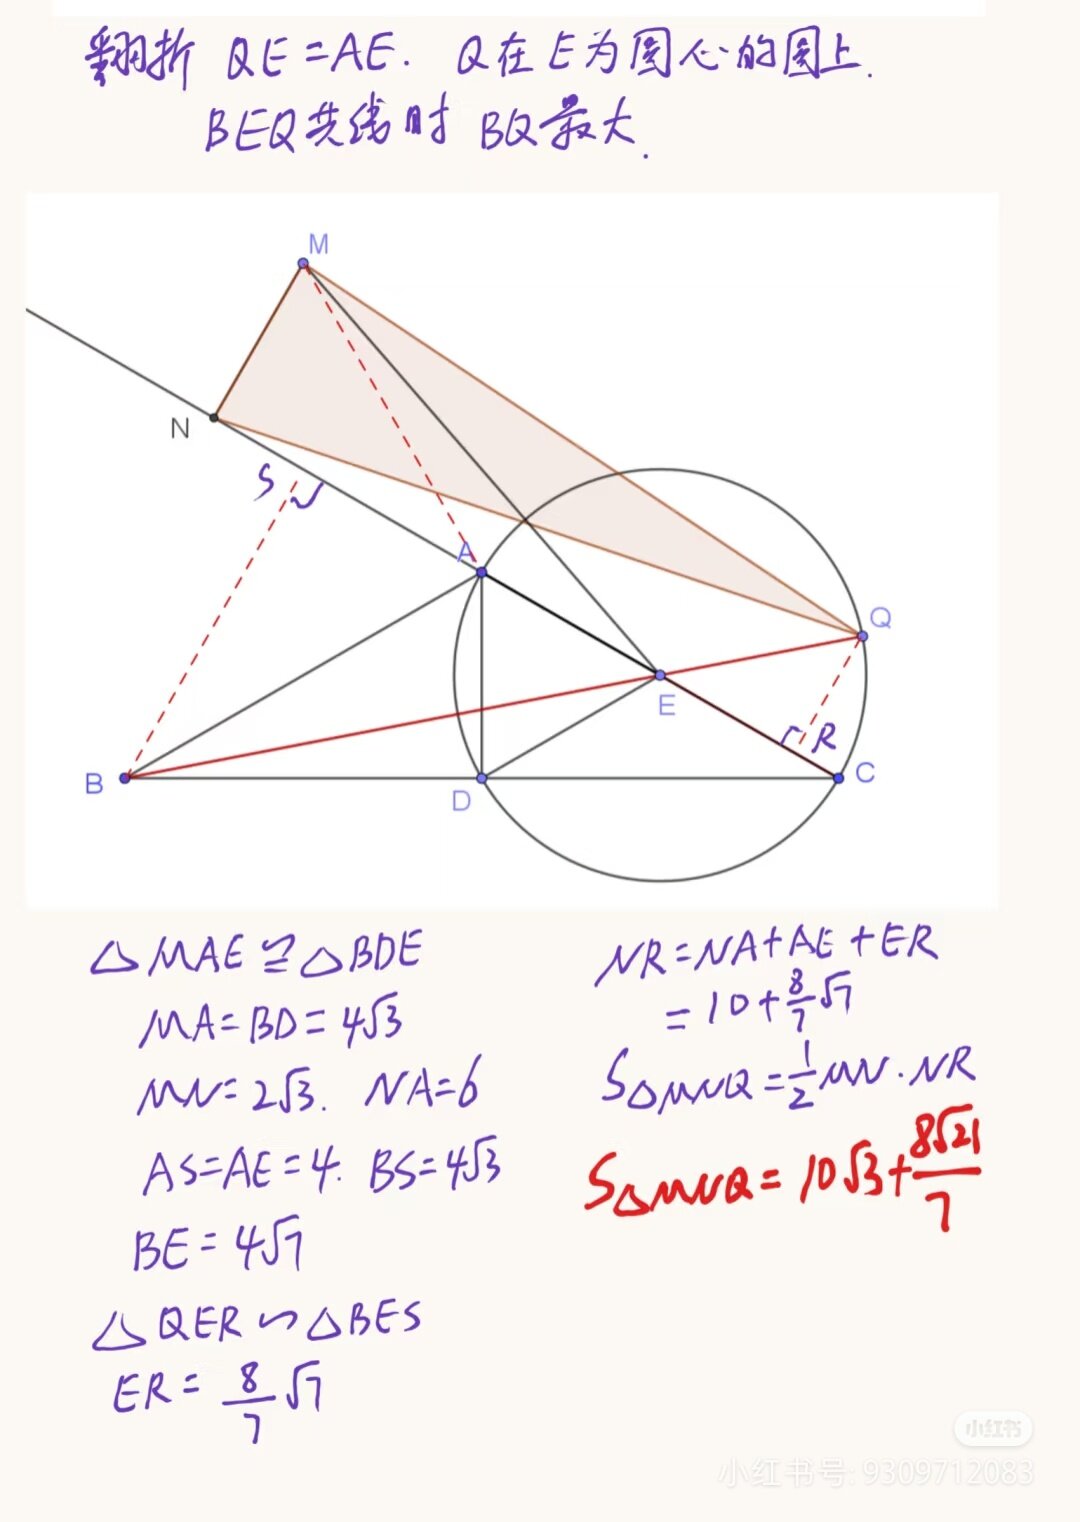 翻折 QE=AE. Q在E为圆心的圆上.
BEQ共线时 BQ最大.
M
N
S
A
Q
E
R
B
D
C
△MAE≌△BDE
MA=BD=4√3
MN=2√3. NA=6
AS=AE=4. BS=4√3
BE=4√7
△QER∽△BES
ER=8/7√7
NR=NA+AE+ER
=10+8/7√7
S△MNQ=1/2MN·NR
S△MNQ=10√3+8√21/7
小红书
小红书号: 9309712083